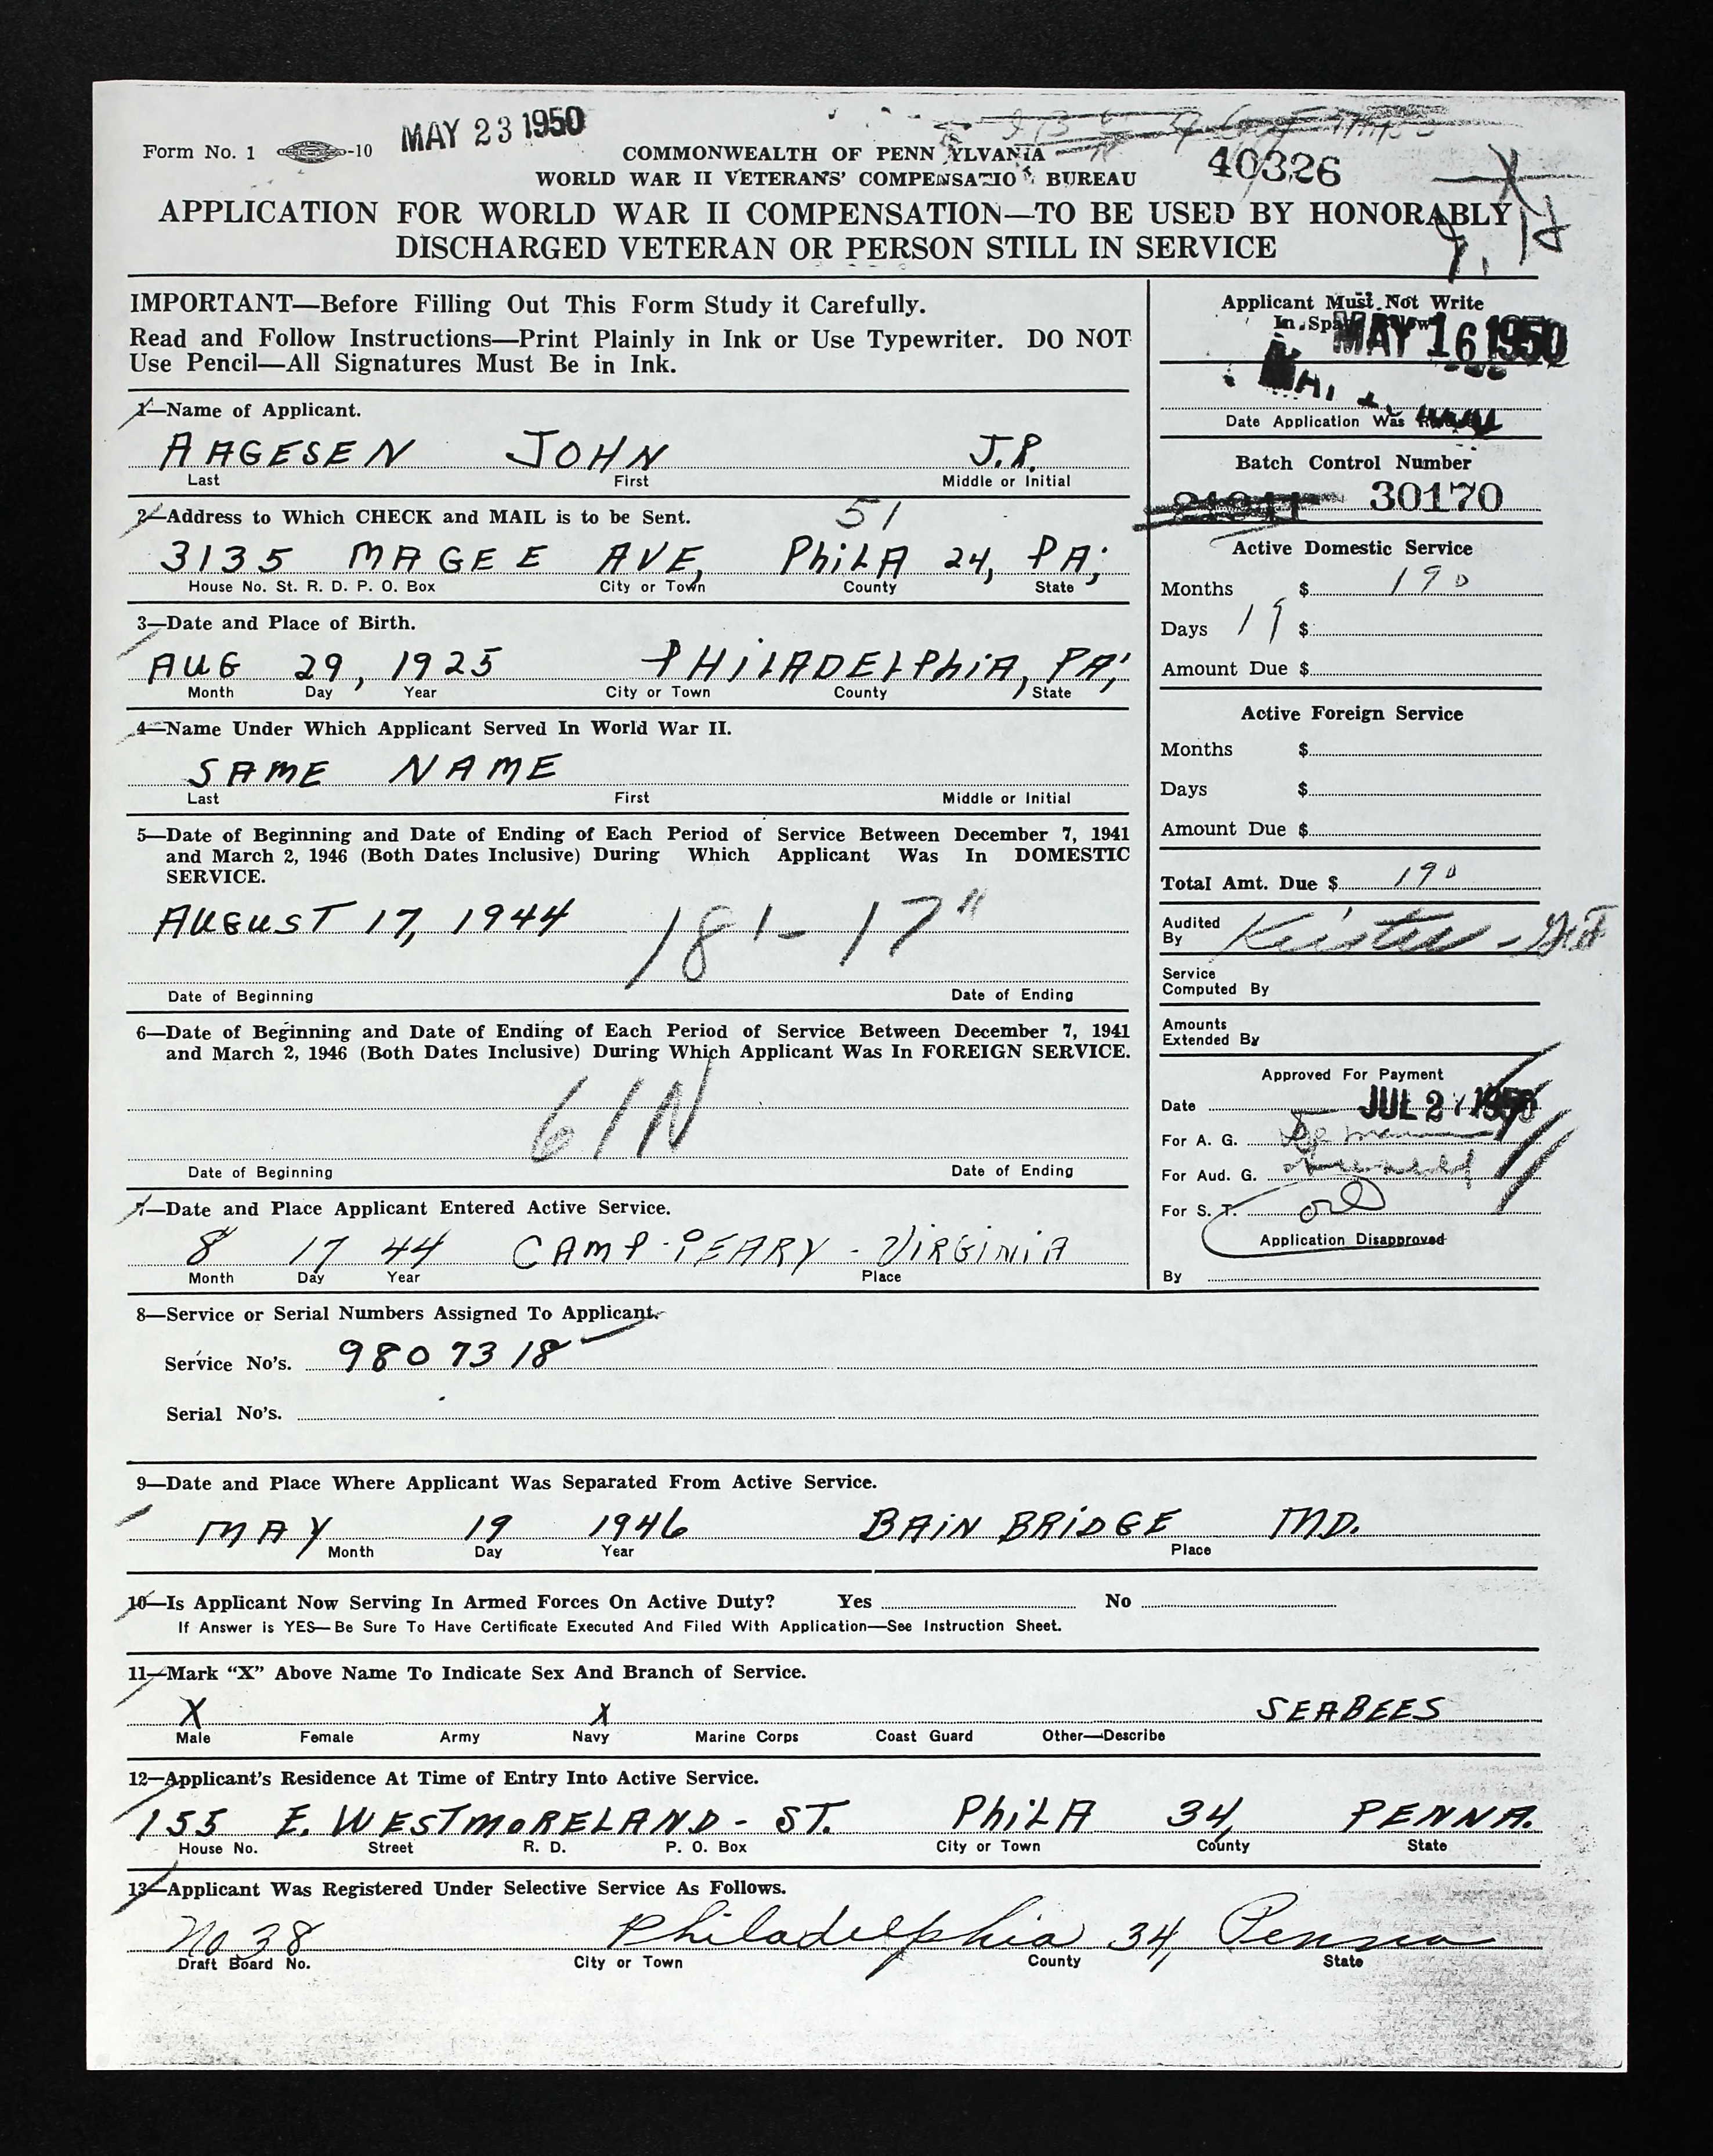 MAY 23 1950
Form No. 1 -10
40326
COMMONWEALTH OF PENN YLVANIA
WORLD WAR II VETERANS' COMPENSATION BUREAU
APPLICATION FOR WORLD WAR II COMPENSATION—TO BE USED BY HONORABLY
DISCHARGED VETERAN OR PERSON STILL IN SERVICE
IMPORTANT—Before Filling Out This Form Study it Carefully.
Read and Follow Instructions—Print Plainly in Ink or Use Typewriter. DO NOT
Use Pencil—All Signatures Must Be in Ink.
1—Name of Applicant.
AAGESEN JOHN J.R.
Last First Middle or Initial
2—Address to Which CHECK and MAIL is to be Sent.
51
3135 MAGEE AVE, PhiLA 24, PA;
House No. St. R. D. P. O. Box City or Town County State
3—Date and Place of Birth.
AUG 29, 1925 PHiLADELPhiA, PA;
Month Day Year City or Town County State
4—Name Under Which Applicant Served In World War II.
SAME NAME
Last First Middle or Initial
5—Date of Beginning and Date of Ending of Each Period of Service Between December 7, 1941
and March 2, 1946 (Both Dates Inclusive) During Which Applicant Was In DOMESTIC
SERVICE.
AUGUST 17, 1944 18'-17"
Date of Beginning Date of Ending
6—Date of Beginning and Date of Ending of Each Period of Service Between December 7, 1941
and March 2, 1946 (Both Dates Inclusive) During Which Applicant Was In FOREIGN SERVICE.
61N
Date of Beginning Date of Ending
7—Date and Place Applicant Entered Active Service.
8 17 44 CAMP-PEARY - VIRGINIA
Month Day Year Place
Applicant Must Not Write
In Spa
MAY 16 1950
Date Application Was
Batch Control Number
30170
Active Domestic Service
Months $ 190
Days 19 $
Amount Due $
Active Foreign Service
Months $
Days $
Amount Due $
Total Amt. Due $ 190
Audited
By
Service
Computed By
Amounts
Extended By
Approved For Payment
Date JUL 27 1950
For A. G.
For Aud. G.
For S. T.
Application Disapproved
By
8—Service or Serial Numbers Assigned To Applicant.
Service No's. 9807318
Serial No's.
9—Date and Place Where Applicant Was Separated From Active Service.
MAY 19 1946 BAiN BRiDGE MD.
Month Day Year Place
10—Is Applicant Now Serving In Armed Forces On Active Duty? Yes No
If Answer is YES—Be Sure To Have Certificate Executed And Filed With Application—See Instruction Sheet.
11—Mark "X" Above Name To Indicate Sex And Branch of Service.
X X SEABEES
Male Female Army Navy Marine Corps Coast Guard Other—Describe
12—Applicant's Residence At Time of Entry Into Active Service.
155 E. WESTMORELAND - ST. PhiLA 34, PENNA.
House No. Street R. D. P. O. Box City or Town County State
13—Applicant Was Registered Under Selective Service As Follows.
No 38 Philadelphia 34, Penna
Draft Board No. City or Town County State